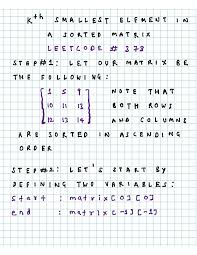 Kth SMALLEST ELEMENT IN
A SORTED MATRIX
LEETCODE # 378
STEP#1: LET OUR MATRIX BE
THE FOLLOWING:
1 5 9 NOTE THAT
10 11 13 BOTH ROWS
12 13 14 AND COLUMNS
ARE SORTED IN ASCENDING
ORDER
STEP#2: LET'S START BY
DEFINING TWO VARIABLES:
start : matrix[0][0]
end : matrix[-1][-1]